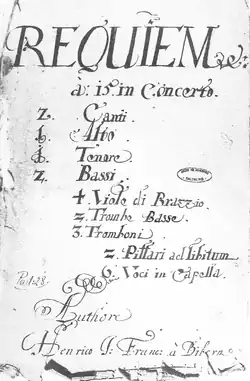 REQUIEM
à: 15. in Concerto.
2. Canti.
Alto
Tenore
2. Bassi.
4. Viole di Brazzio
2. Trombe Basse.
3. Tromboni.
2. Piffari ad libitum
6. Voci in Capella.
Authore
Henrico I: Franc: à Bibern